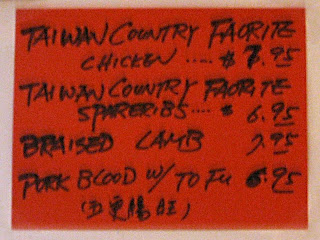 TAIWAN COUNTRY FAORITE
CHICKEN ..... $ 7.95
TAIWAN COUNTRY FAORITE
SPARERIBS .... $ 6.95
BRAISED LAMB 7.95
PORK BLOOD W/ TO FU 6.95
(五更腸旺)